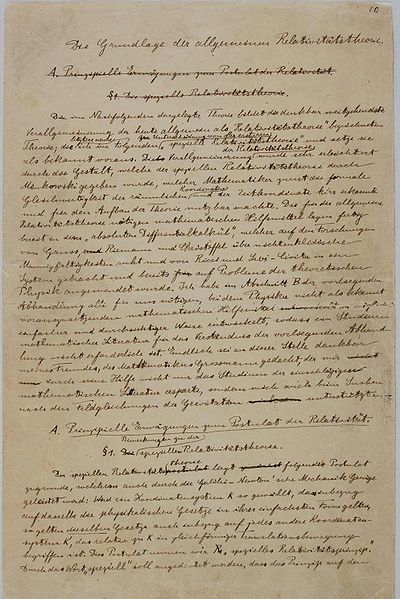 Die Grundlage der allgemeinen Relativitätstheorie.
A. Prinzipielle Erwägungen zum Postulat der Relativität.
§1. Die spezielle Relativitätstheorie.
Die im Nachfolgenden dargelegte Theorie bildet die denkbar weitgehendste
Verallgemeinerung der heute allgemein als "Relativitätstheorie" bezeichneten
Theorie; die letztere nenne ich im Folgenden zur Unterscheidung von der ersteren "spezielle Relativitätstheorie" und setze sie
als bekannt voraus. Die Verallgemeinerung der Relativitätstheorie wurde sehr erleichtert
durch die Gestalt, welche der speziellen Relativitätstheorie durch
Minkowski gegeben wurde, welcher Mathematiker zuerst die formale
Gleichwertigkeit der räumlichen und der Zeitkoordinate klar erkannte
und für den Aufbau der Theorie nutzbar machte. Die für die allgemeine
Relativitätstheorie nötigen mathematischen Hilfsmittel lagen fertig
bereit in dem "absoluten Differentialkalkül", welcher auf den Forschungen
von Gauss, Riemann und Christoffel über nichteuklidische
Mannigfaltigkeiten ruht und von Ricci und Levi-Civita in ein
System gebracht und bereits auf Probleme der theoretischen
Physik angewendet wurde. Ich habe im Abschnitt B der vorliegenden
Abhandlung alle für uns nötigen, bei dem Physiker nicht als bekannt
vorauszusetzenden mathematischen Hilfsmittel in möglichst
einfacher und durchsichtiger Weise entwickelt, sodass ein Studium
mathematischer Literatur für das Verständnis der vorliegenden Abhand-
lung nicht erforderlich ist. Endlich sei an dieser Stelle dankbar
meines Freundes, des Mathematikers Grossmann gedacht, der mir
durch seine Hilfe nicht nur das Studium der einschlägigen
mathematischen Literatur ersparte, sondern mich auch beim Suchen
nach den Feldgleichungen der Gravitation unterstützte.
A. Prinzipielle Erwägungen zum Postulat der Relativität.
Bemerkungen zu der
§1. Die speziellen Relativitätstheorie.
Der speziellen Relativitätstheorie liegt folgendes Postulat
zugrunde, welchem auch durch die Galilei-Newton'sche Mechanik Genüge
geleistet wird: Wird ein Koordinatensystem K so gewählt, dass inbezug
auf dasselbe die physikalischen Gesetze in ihrer einfachsten Form gelten,
so gelten dieselben Gesetze auch inbezug auf jedes andere Koordinaten-
system K', das relativ zu K in gleichförmiger Translationsbewegung
begriffen ist. Dies Postulat nennen wir "spezielles Relativitätsprinzip."
Durch das Wort "speziell" soll angedeutet werden, dass das Prinzip auf den